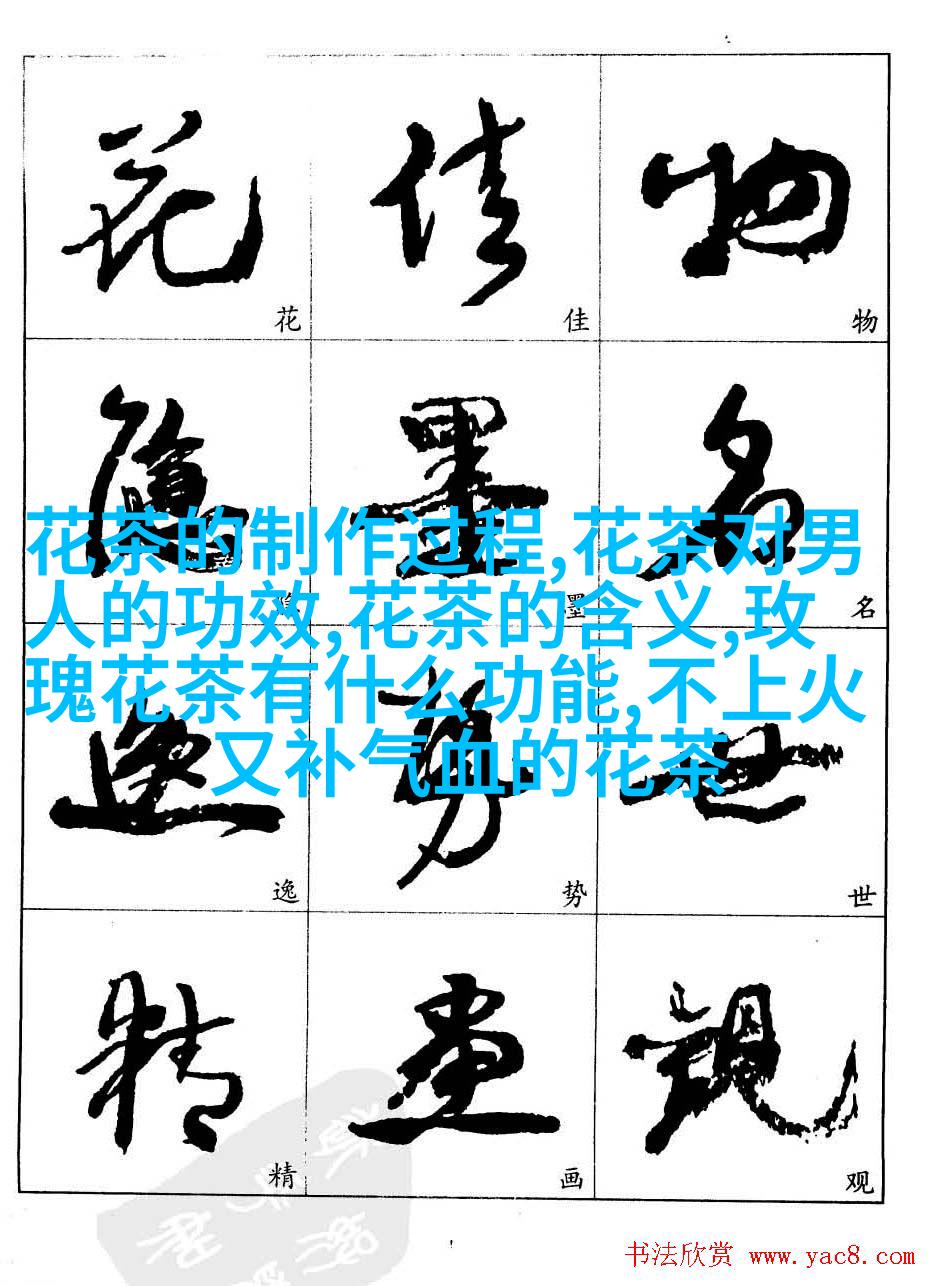 花 佳 物
花 佳 物
隐 墨 名
花茶的制作过程,花茶对男
隐 墨 名
人的功效,花茶的含义,玫
瑰花茶有什么功能,不上火
又补气血的花茶
逸 势 世
逸 势 世
精 画 观
精 画 观
书法欣赏 www.yac8.com